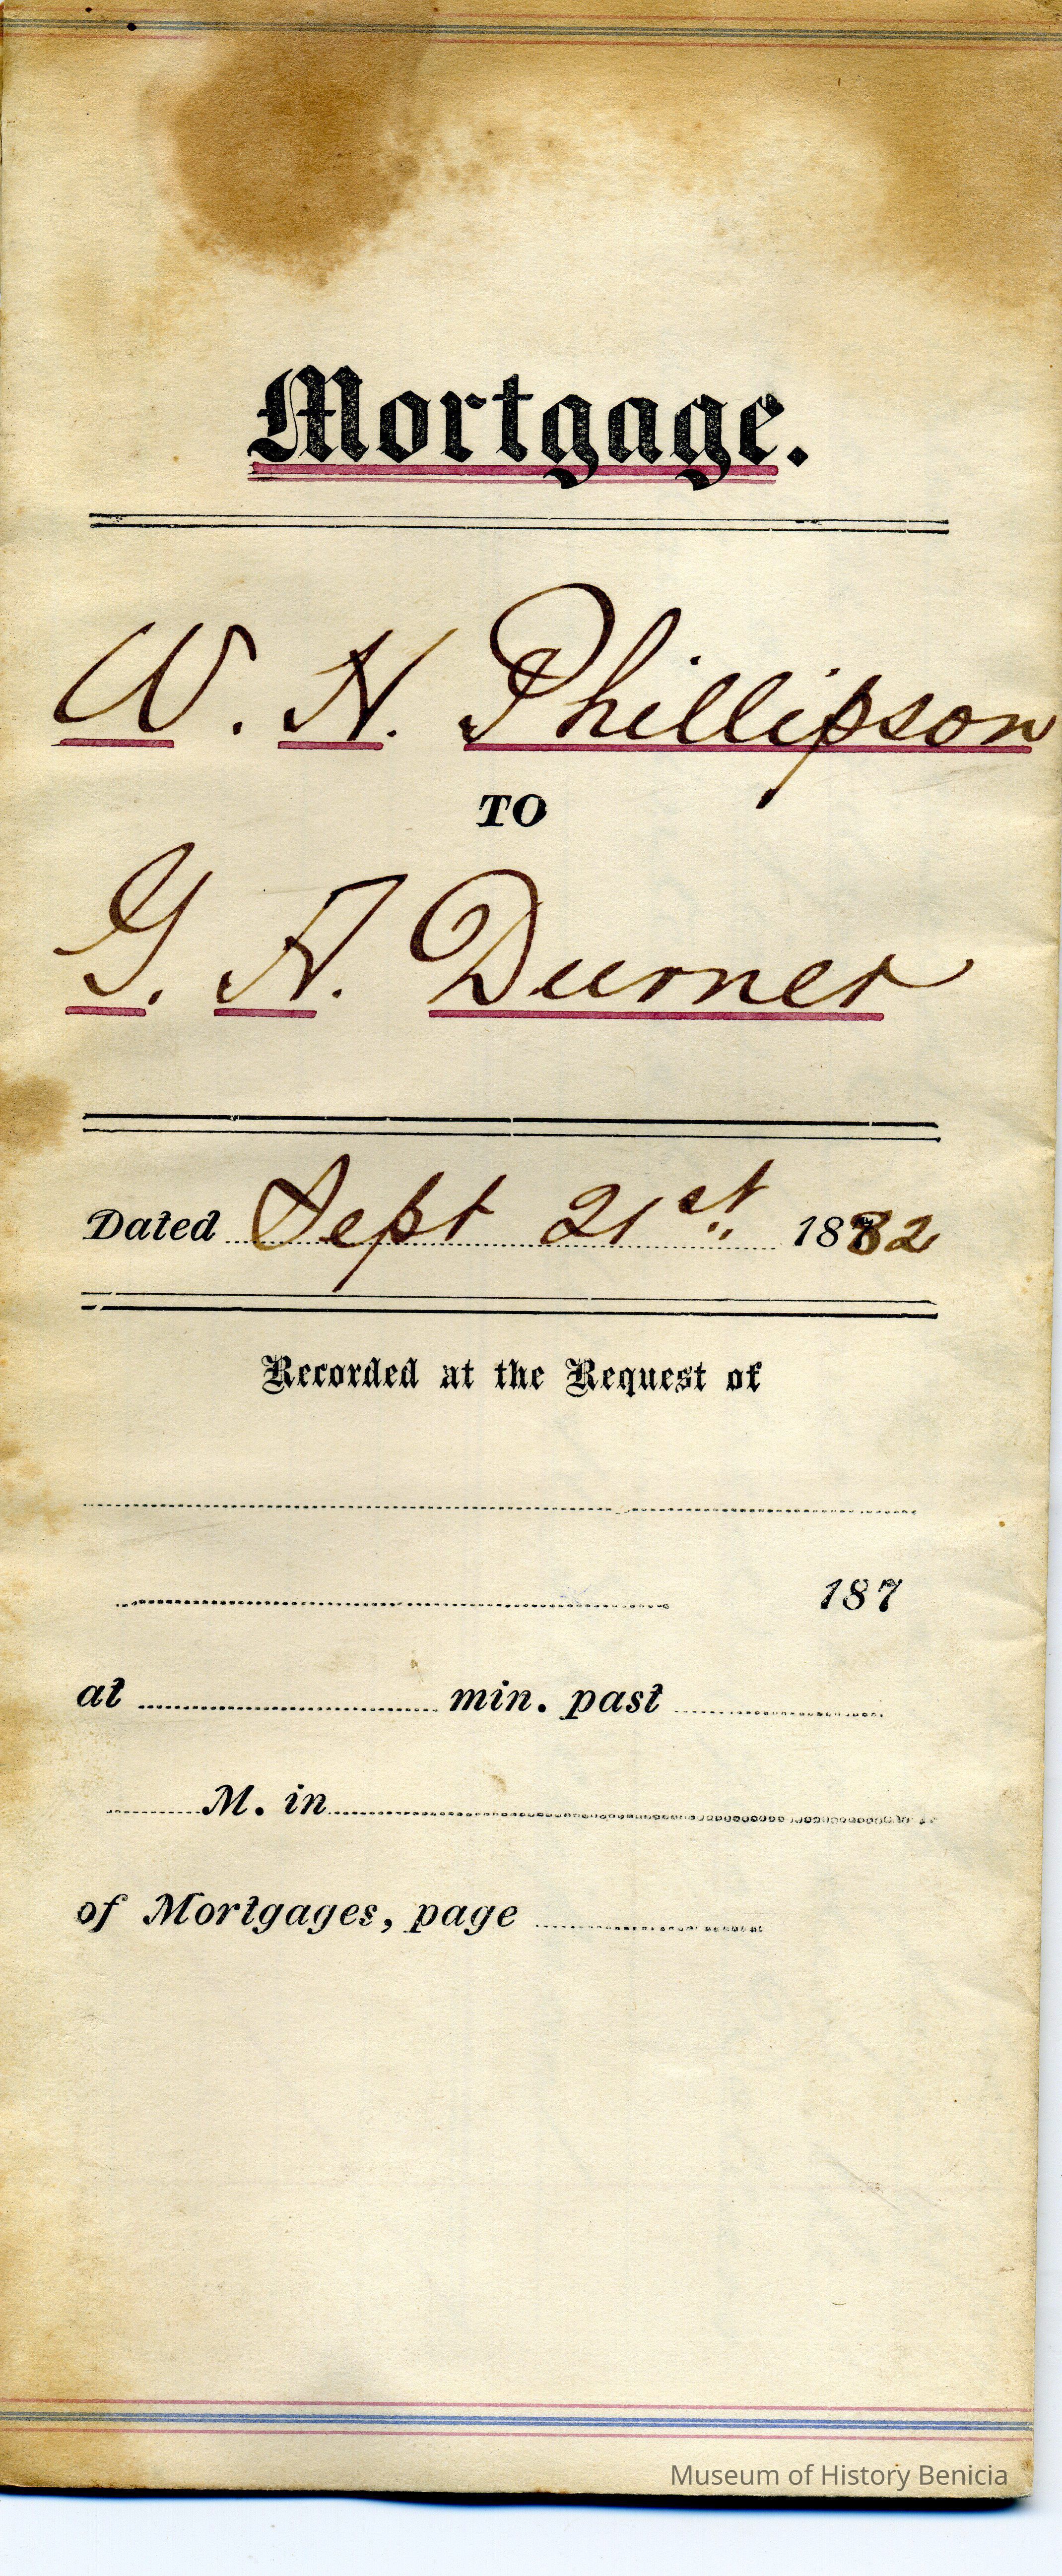 Mortgage.
W. H. Phillipson
TO
G. H. Durner
Dated Sept 21st 1882
Recorded at the Request of
187
at min. past
M. in
of Mortgages, page
Museum of History Benicia